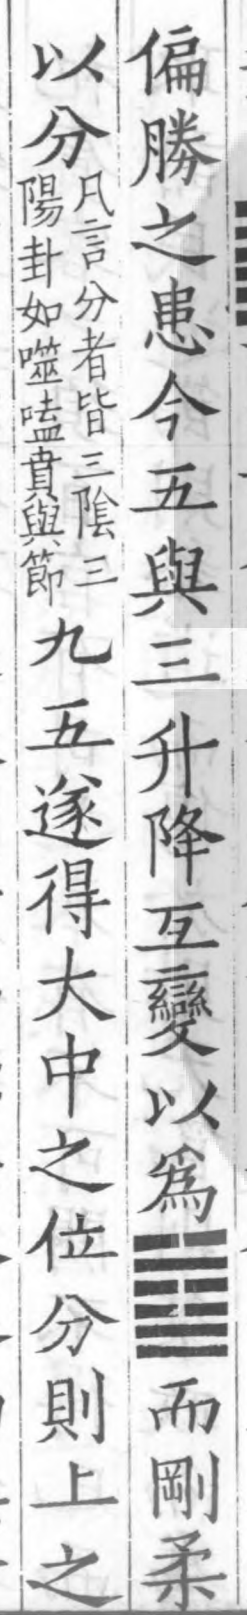 偏勝之患今五與三升降互變以爲䷻而剛柔
以分凡言分者皆三陰三陽卦如噬嗑賁與節九五遂得大中之位分則上之